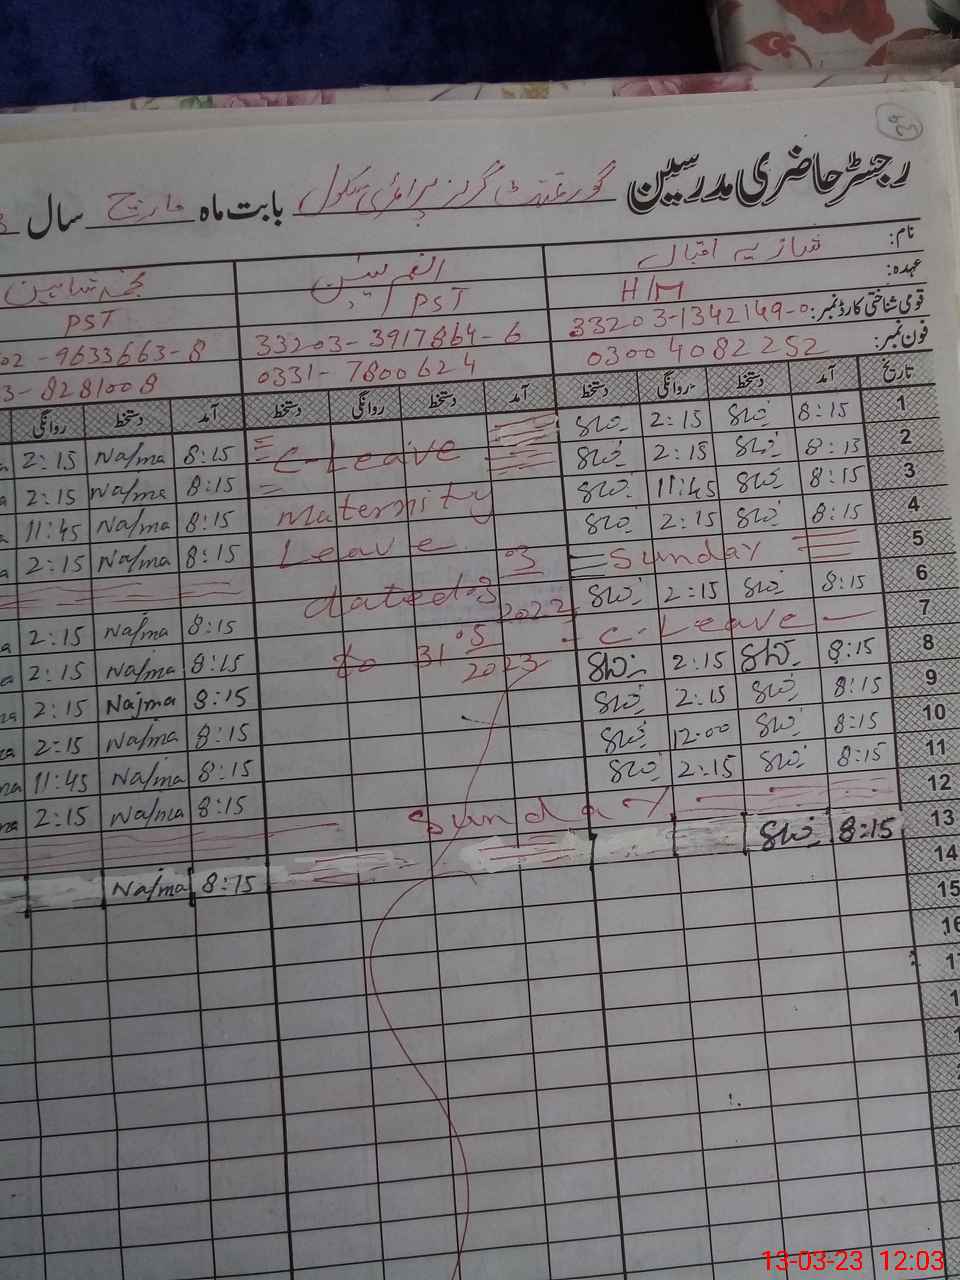 93
رجسٹر حاضری مدرسین گورنمنٹ گرلز پرائمری سکول بابت ماہ مارچ سال
نام: شازیہ اقبال
عہدہ: H/M PST PST
قومی شناختی کارڈ نمبر: 33203-1342149-0 33203-3917864-6 02-9633663-8
فون نمبر: 03004082252 0331-7800624 3-8281008
تاریخ آمد دستخط روانگی دستخط آمد دستخط روانگی دستخط آمد دستخط روانگی
1 8:15 2:15 C-Leave 8:15 Najma 2:15
2 8:15 2:15 8:15 Najma 2:15
3 8:15 11:45 Maternity 8:15 Najma 11:45
4 8:15 2:15 Leave 8:15 Najma 2:15
5 Sunday
6 8:15 2:15 dated 03 03 2023 8:15 Najma 2:15
7 C-Leave to 31 05 2023 8:15 Najma 2:15
8 8:15 2:15 8:15 Najma 2:15
9 8:15 2:15 8:15 Najma 2:15
10 8:15 12:00 8:15 Najma 11:45
11 8:15 2:15 8:15 Najma 2:15
12 Sunday
13 8:15 8:15 Najma
14
15
16
13-03-23 12:03